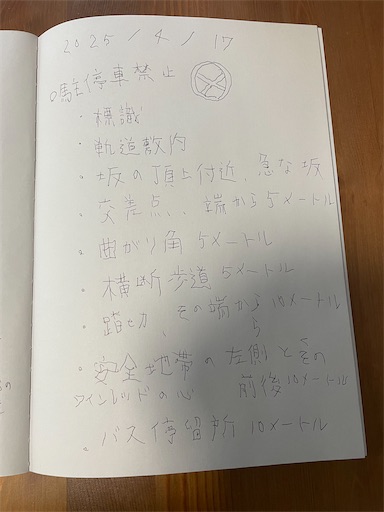 2025/4/17
○駐停車禁止
・標識
・軌道敷内
・坂の頂上付近、急な坂
・交差点、、端から5メートル
・曲がり角 5メートル
・横断歩道 5メートル
・踏切、その端から10メートル
ら
・安全地帯の左側とその
前後10メートル
ワインレッドの心
・バス停留所 10メートル